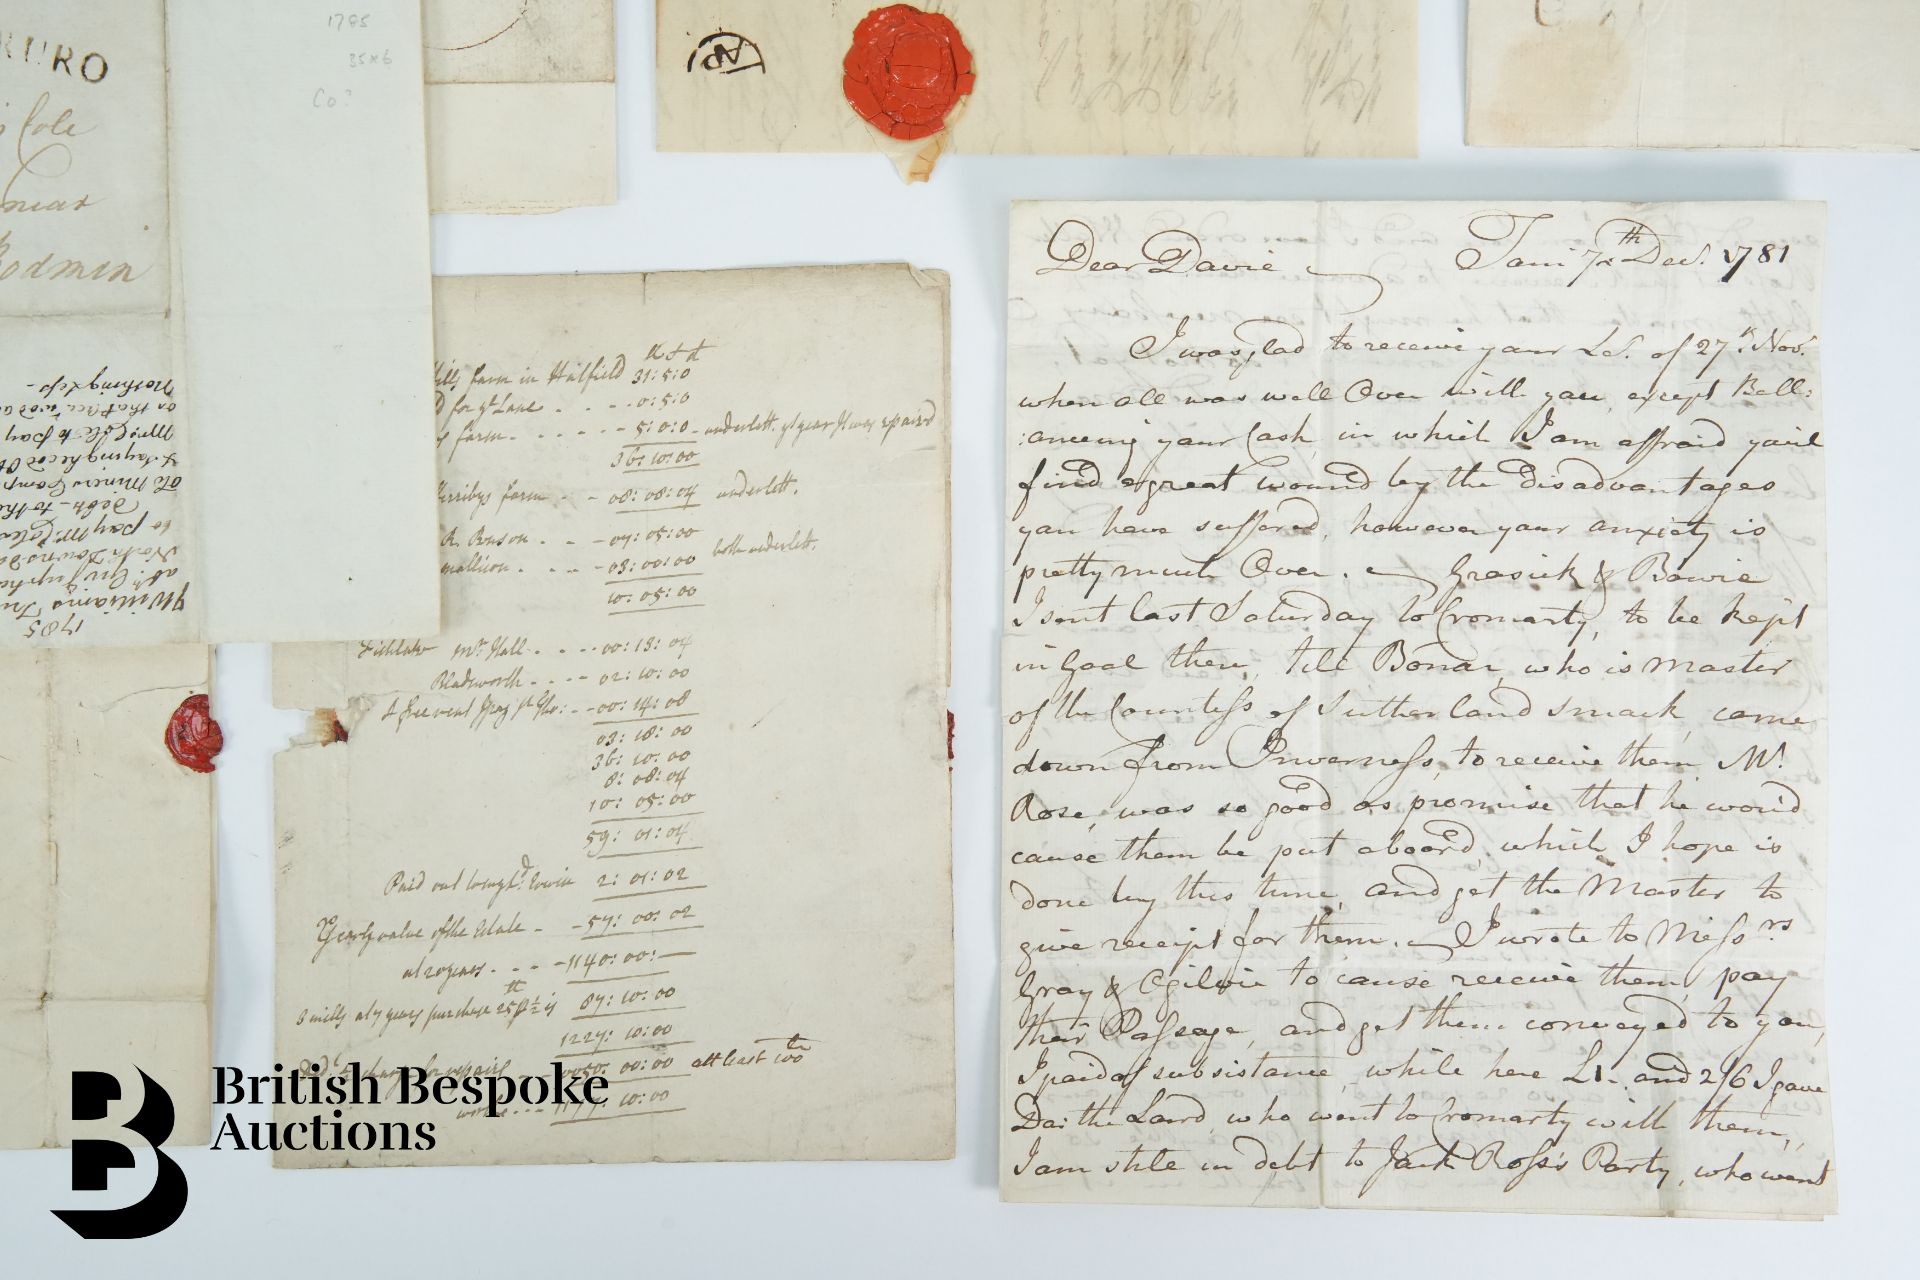 RURO
Cole
Bodmin
1785
35x6
Co?
1785
Williams
North Downs
to pay Mr Coles
Debt - to the
old Miners Comp
& saying he cod
Mrs Cole to pay
Nothing less -
farm in Hatfield 31: 5: 0
d for yt Lane . . . . 0: 5: 0
farm . . . . . 5: 0: 0 - underlett. yt year it was repaired
36: 10: 00
farm . . - 08: 08: 04 underlett.
R. Benson . . - 07: 05: 00
. . . - 03: 00: 00 both underlett.
10: 05: 00
Fishlake Mr Hall . . . . 00: 13: 04
Bladworth . . . . 02: 10: 00
A free rent - 00: 14: 08
03: 18: 00
36: 10: 00
8: 08: 04
10: 05: 00
59: 01: 04
Paid out 2: 01: 02
Yearly value of the Estate - - 57: 00: 02
at 20 years . . . - 1140: 00: -
3 mills at 7 years purchase 25 is 87: 10: 00
1227: 10: 00
for repairs 0050: 00: 00 att least 100
worth . . . 1177: 10: 00
Dear Davie Tain 7th Decr. 1781
I was glad to receive your Lr. of 27th. Novr.
when all was well Over with you, except Ball:
:anceing your Cash, in which I am affraid you'l
find a great wound by the Disadvantages
you have suffered, however your anxiety is
pretty much Over. Grasick & Bowie
I sent last Saturday to Cromarty, to be kept
in Goal there, till Bonar, who is Master
of the Countess of Sutherland smack, came
down from Inverness, to receive them Mr.
Rose, was so good as promise that he would
cause them be put aboard, which I hope is
done by this time, and get the Master to
give receipt for them. I wrote to Messrs.
Gray & Ogilvie to cause receive them, pay
their Passage, and get them conveyed to you,
I paid of subsistance, while here L1. and 2/6 I gave
Da: the Laird, who went to Cromarty with them,
I am still in debt to Jack Ross's Party, who went
British Bespoke
Auctions